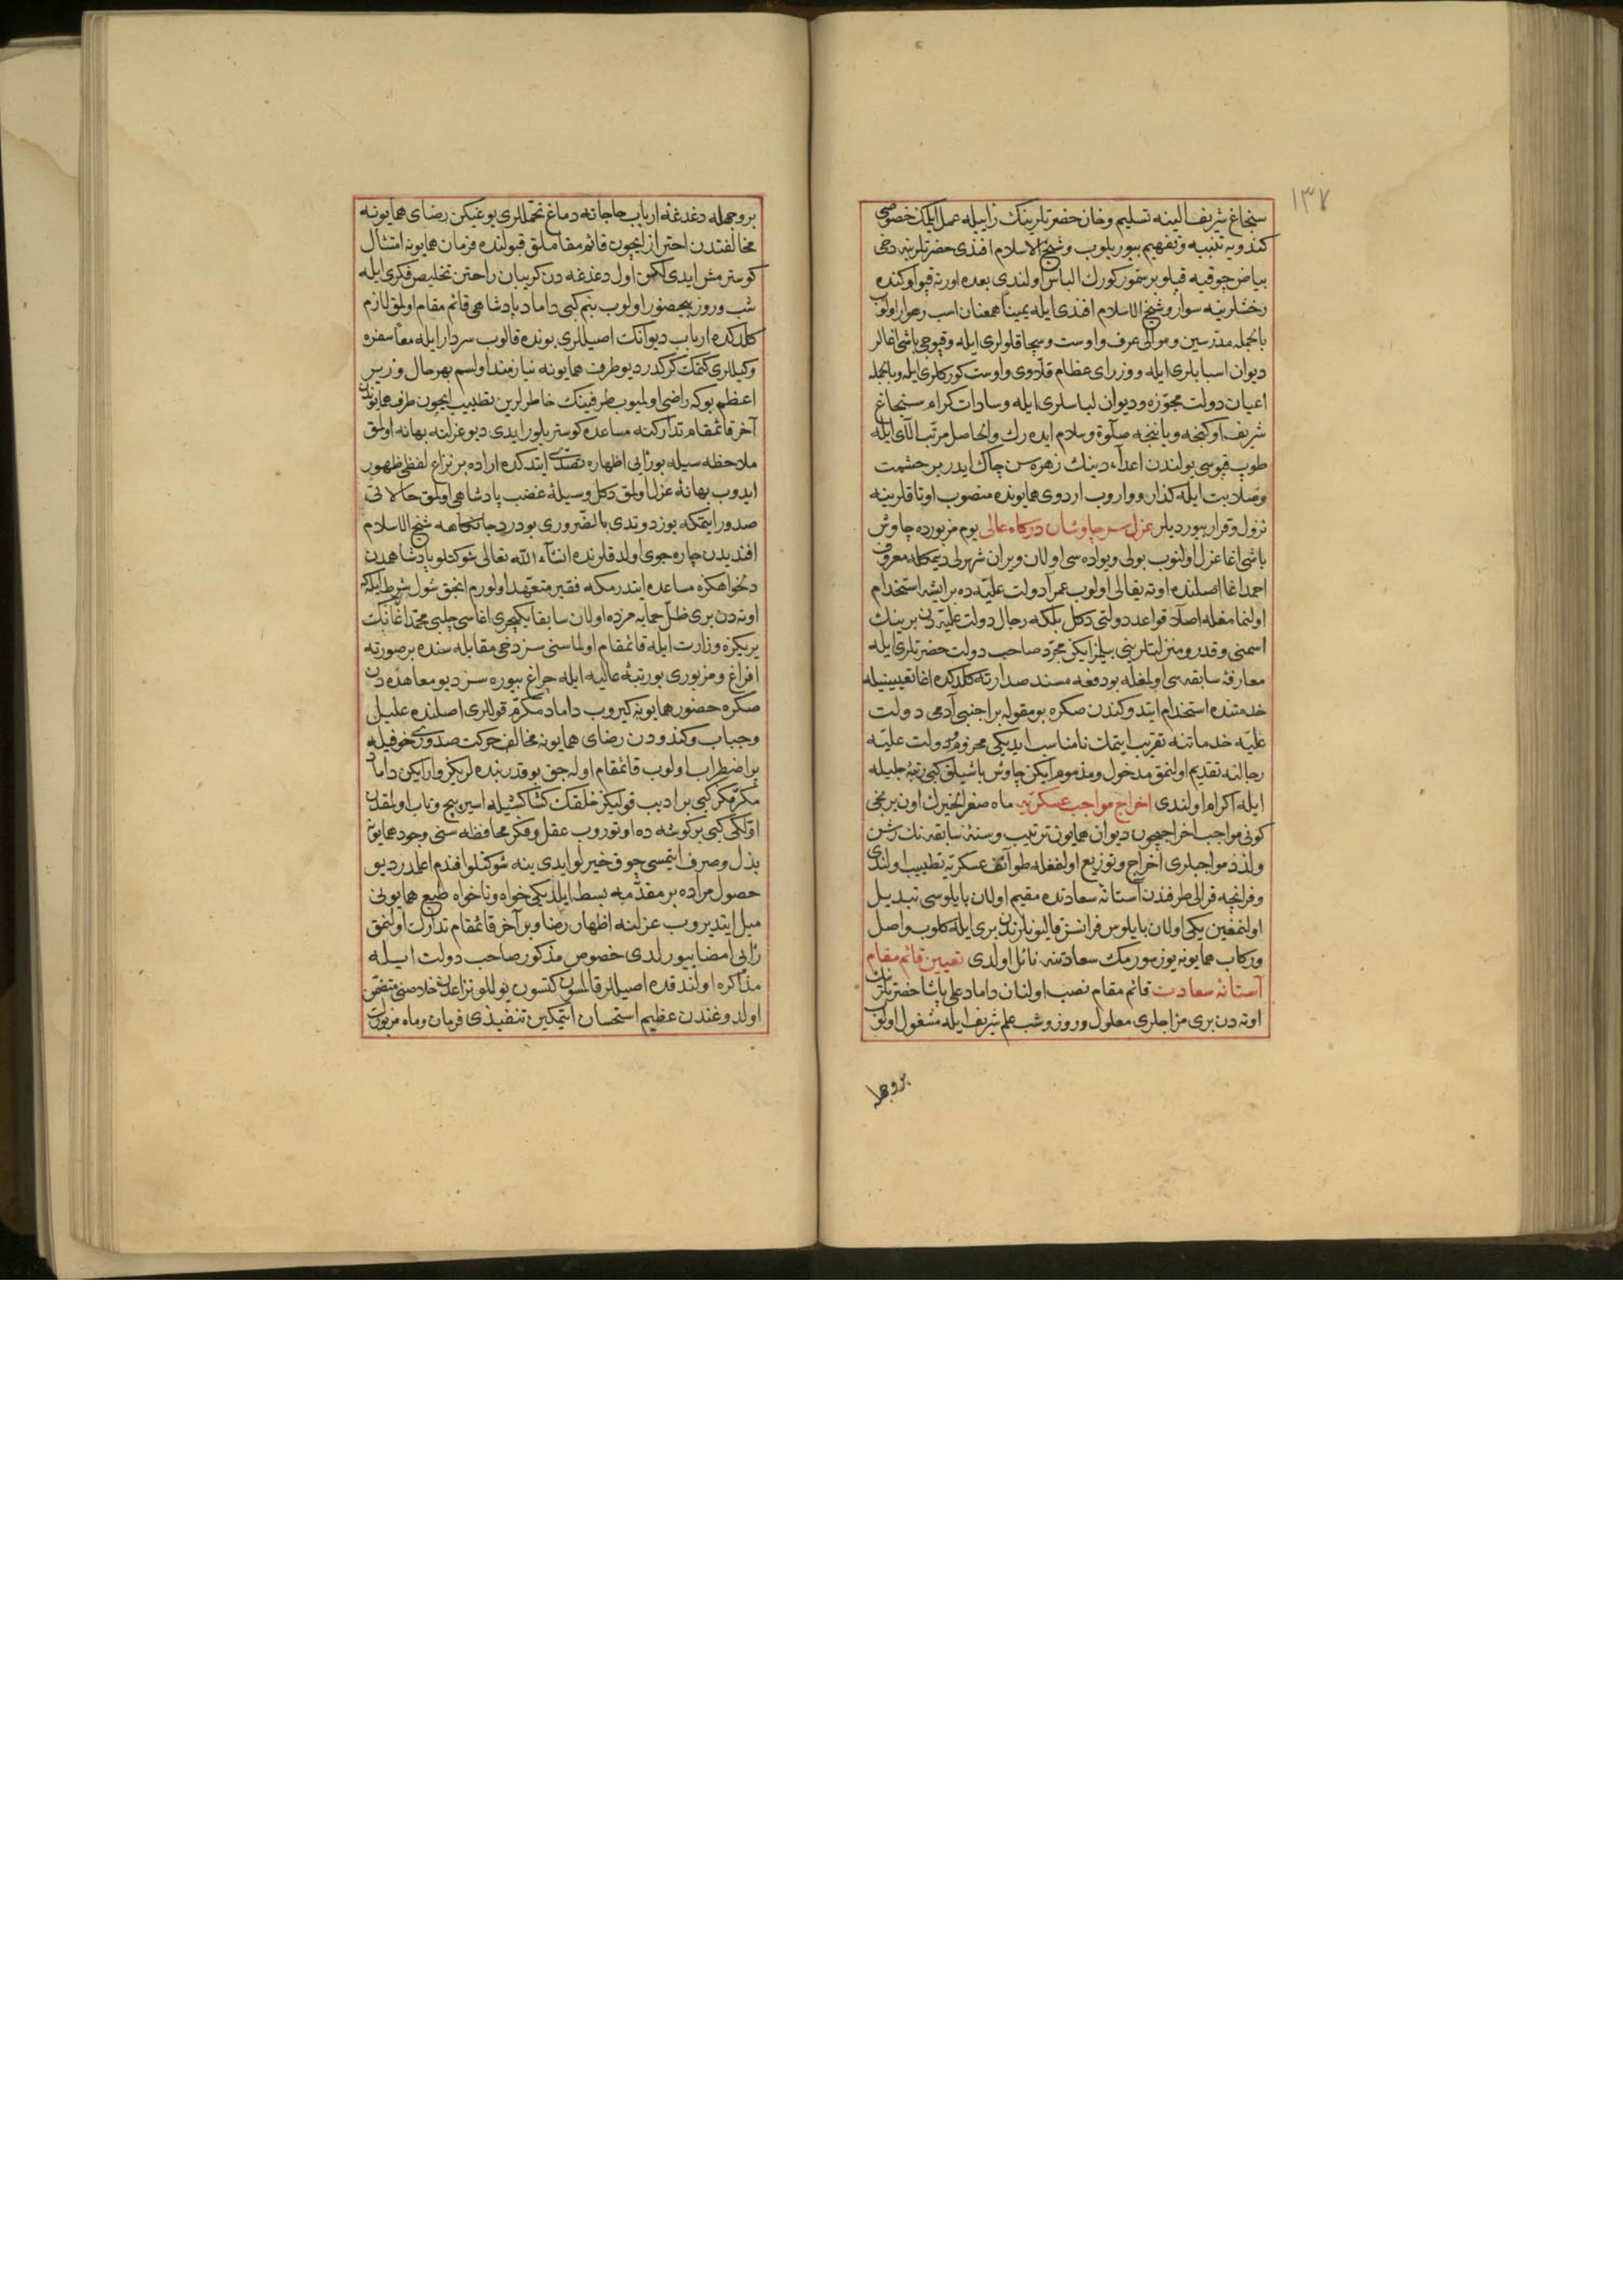 ١٣٧
سنجاغ شريف الينه تسليم وخان حضرتلرينك رأييله عمل ايلمك خصوصى
كندويه تنبيه وتفهيم بيوريلوب وشيخ الاسلام افندى حضرتلرينه دخى
بياض چوقيه قپلو بر سمور كورك الباس اولندى بعده اورته قپو اوكنده
رخشلرينه سوار وشيخ الاسلام افندى ايله يمينا همعنان اسب رهوار اولوب
بالجمله مدرسين وموالى عرف واوست وسچاقلولرى ايله وقپوجى باشى اغالر
ديوان اسبابلرى ايله ووزراى عظام قلاوى واوست كوركلرى ايله وبالجمله
اعيان دولت مجوزه وديوان لباسلرى ايله وسادات كرام سنجاغ
شريف اوكنجه وياننجه صلوة وسلام ايدەرك والحاصل مرتب آلاى ايله
طوپ قپوسى يولندن اعداء دينك زهره سن چاك ايدر بر حشمت
وصلابت ايله كذار وواروب اردوى همايونده منصوب اوتاقلرينه
نزول وقرار بيورديلر عزل سر چاوشان دركاه عالى يوم مزبورده چاوش
باشى اغا عزل اولنوب بولى ويواده سى اولان ويران شهرلى ديمكله معروف
احمد اغا اصلنده اوته يقالى اولوب عمرا دولت عليه ده بر ايشه استخدام
اولنمامغله اصلا قواعد دولتى دكل بلكه رجال دولت عليه دن برينك
اسمنى وقدر ومنزلتلرينى بيلمز ايكن مجرد صاحب دولت حضرتلرى ايله
معارفهٔ سابقه سى اولمغله بو دفعه مسند صدارته كلدكده اغا تعيينيله
خدمتنده استخدام ايتدوكندن صكره بو مقوله بر اجنبى آدمى دولت
عليه خدماتنه تقريب ايتمك نامناسب ايديكى محروم دولت عليه
رجالنه تقديم اولنمق مدخول ومذموم ايكن چاوش باشيلق كبى رتبهٔ جليله
ايله اكرام اولندى اخراج مواجب عسكريه ماه صفر الخيرك اون برنجى
كونى مواجب اخراجيچون ديوان همايون ترتيب وسنهٔ سابقه نك رشن
ولذذ مواجبلرى اخراج وتوزيع اولنمغله طوائف عسكريه تطييب اولندى
وفرانچه قرالى طرفندن آستانهٔ سعادتده مقيم اولان بايلوسى تبديل
اولنمغين يكى اولان بايلوس فرانسز قاليونلرندن برى ايله كلوب واصل
وركاب همايونه يوز سورمك سعادتنه نائل اولدى تعيين قائم مقام
آستانهٔ سعادت قائم مقام نصب اولنان داماد على پاشا حضرتلرينك
اوته دن برى مزاجلرى معلول وروز وشب علم شريف ايله مشغول اولوب
بروجهله
بروجهله دغدغهٔ ارباب حاجاته دماغ تحمللرى يوغيكن رضاى همايونه
مخالفتدن احتراز ايچون قائم مقاملق قبولنده فرمان همايونه امتثال
كوسترمش ايدى لكن اول دغدغه دن كريبان راحتن تخليص فكرى ايله
شب وروز بيحضور اولوب بنم كبى داماد پادشاهى قائم مقام اولمق لازم
كلدكده ارباب ديوانك اصيللرى بونده قالوب سردار ايله معا سفره
وكيللرى كتمك كركدر ديو طرف همايونه نيازمند اولسم بهر حال وزير
اعظم بوكه راضى اولميوب طرفينك خاطرلرين تطييب ايچون طرف همايوندن
آخر قائمقام تداركنه مساعده كوستريلور ايدى ديو عزلنه بهانه اولمق
ملاحظه سيله بو رأيى اظهاره تصدى ايتدكده اراده بر نزاع لفظى ظهور
ايدوب بهانهٔ عزل اولمق دكل وسيلهٔ غضب پادشاهى اولمق حالاتى
صدور ايتمكه يوز دوتدى بالضرورى بو درد جانكاهه شيخ الاسلام
افنديدن چاره جوى اولدقلرنده انشاء الله تعالى شوكتلو پادشاهمدن
دلخواهكزه مساعده ايتدرمكه فقير متعهد اولورم انجق شول شرط ايله كه
اوته دن برى ظل حمايه مزده اولان سابقا يكيچرى اغاسى چلبى محمد اغانك
يريكزه وزارت ايله قائمقام اولماسنى سز دخى مقابله سنده بر صورته
افراغ ومزبورى بو رتبهٔ عاليه ايله چراغ بيوره سز ديو معاهده دن
صكره حضور همايونه كيروب داماد مكرم قوللرى اصلنده عليل
وجباب وكندودن رضاى همايونه مخالف حركت صدورى خوفيله
پر اضطراب اولوب قائمقام اوله جق بو قدر بنده لريكز وار ايكن داماد
مكرمكز كبى بر اديب قوليكز خلقك كشاكشيله اسير پيچ وتاب اولمقدن
اولكى كبى بر كوشه ده اوتوروب عقل وفكر محافظه سنى وجود همايونه
بذل وصرف ايتمسى چوق خيرلو ايدى ينه شوكتلو افندم اعلمدر ديو
حصول مراده بر مقدمه بسط ايلديكى خواه وناخواه طبع همايونى
ميل ايتديروب عزلنه اظهار رضا وبر آخر قائمقام تدارك اولنمق
رأيى امضا بيورلدى خصوص مذكور صاحب دولت ايله
مذاكره اولندقده اصيللر قالسون كتسون يوللو نزاعدن خلاصنى متضمن
اولدوغندن عظيم استحسان ايتمكين تنفيذى فرمان وماه مزبورك